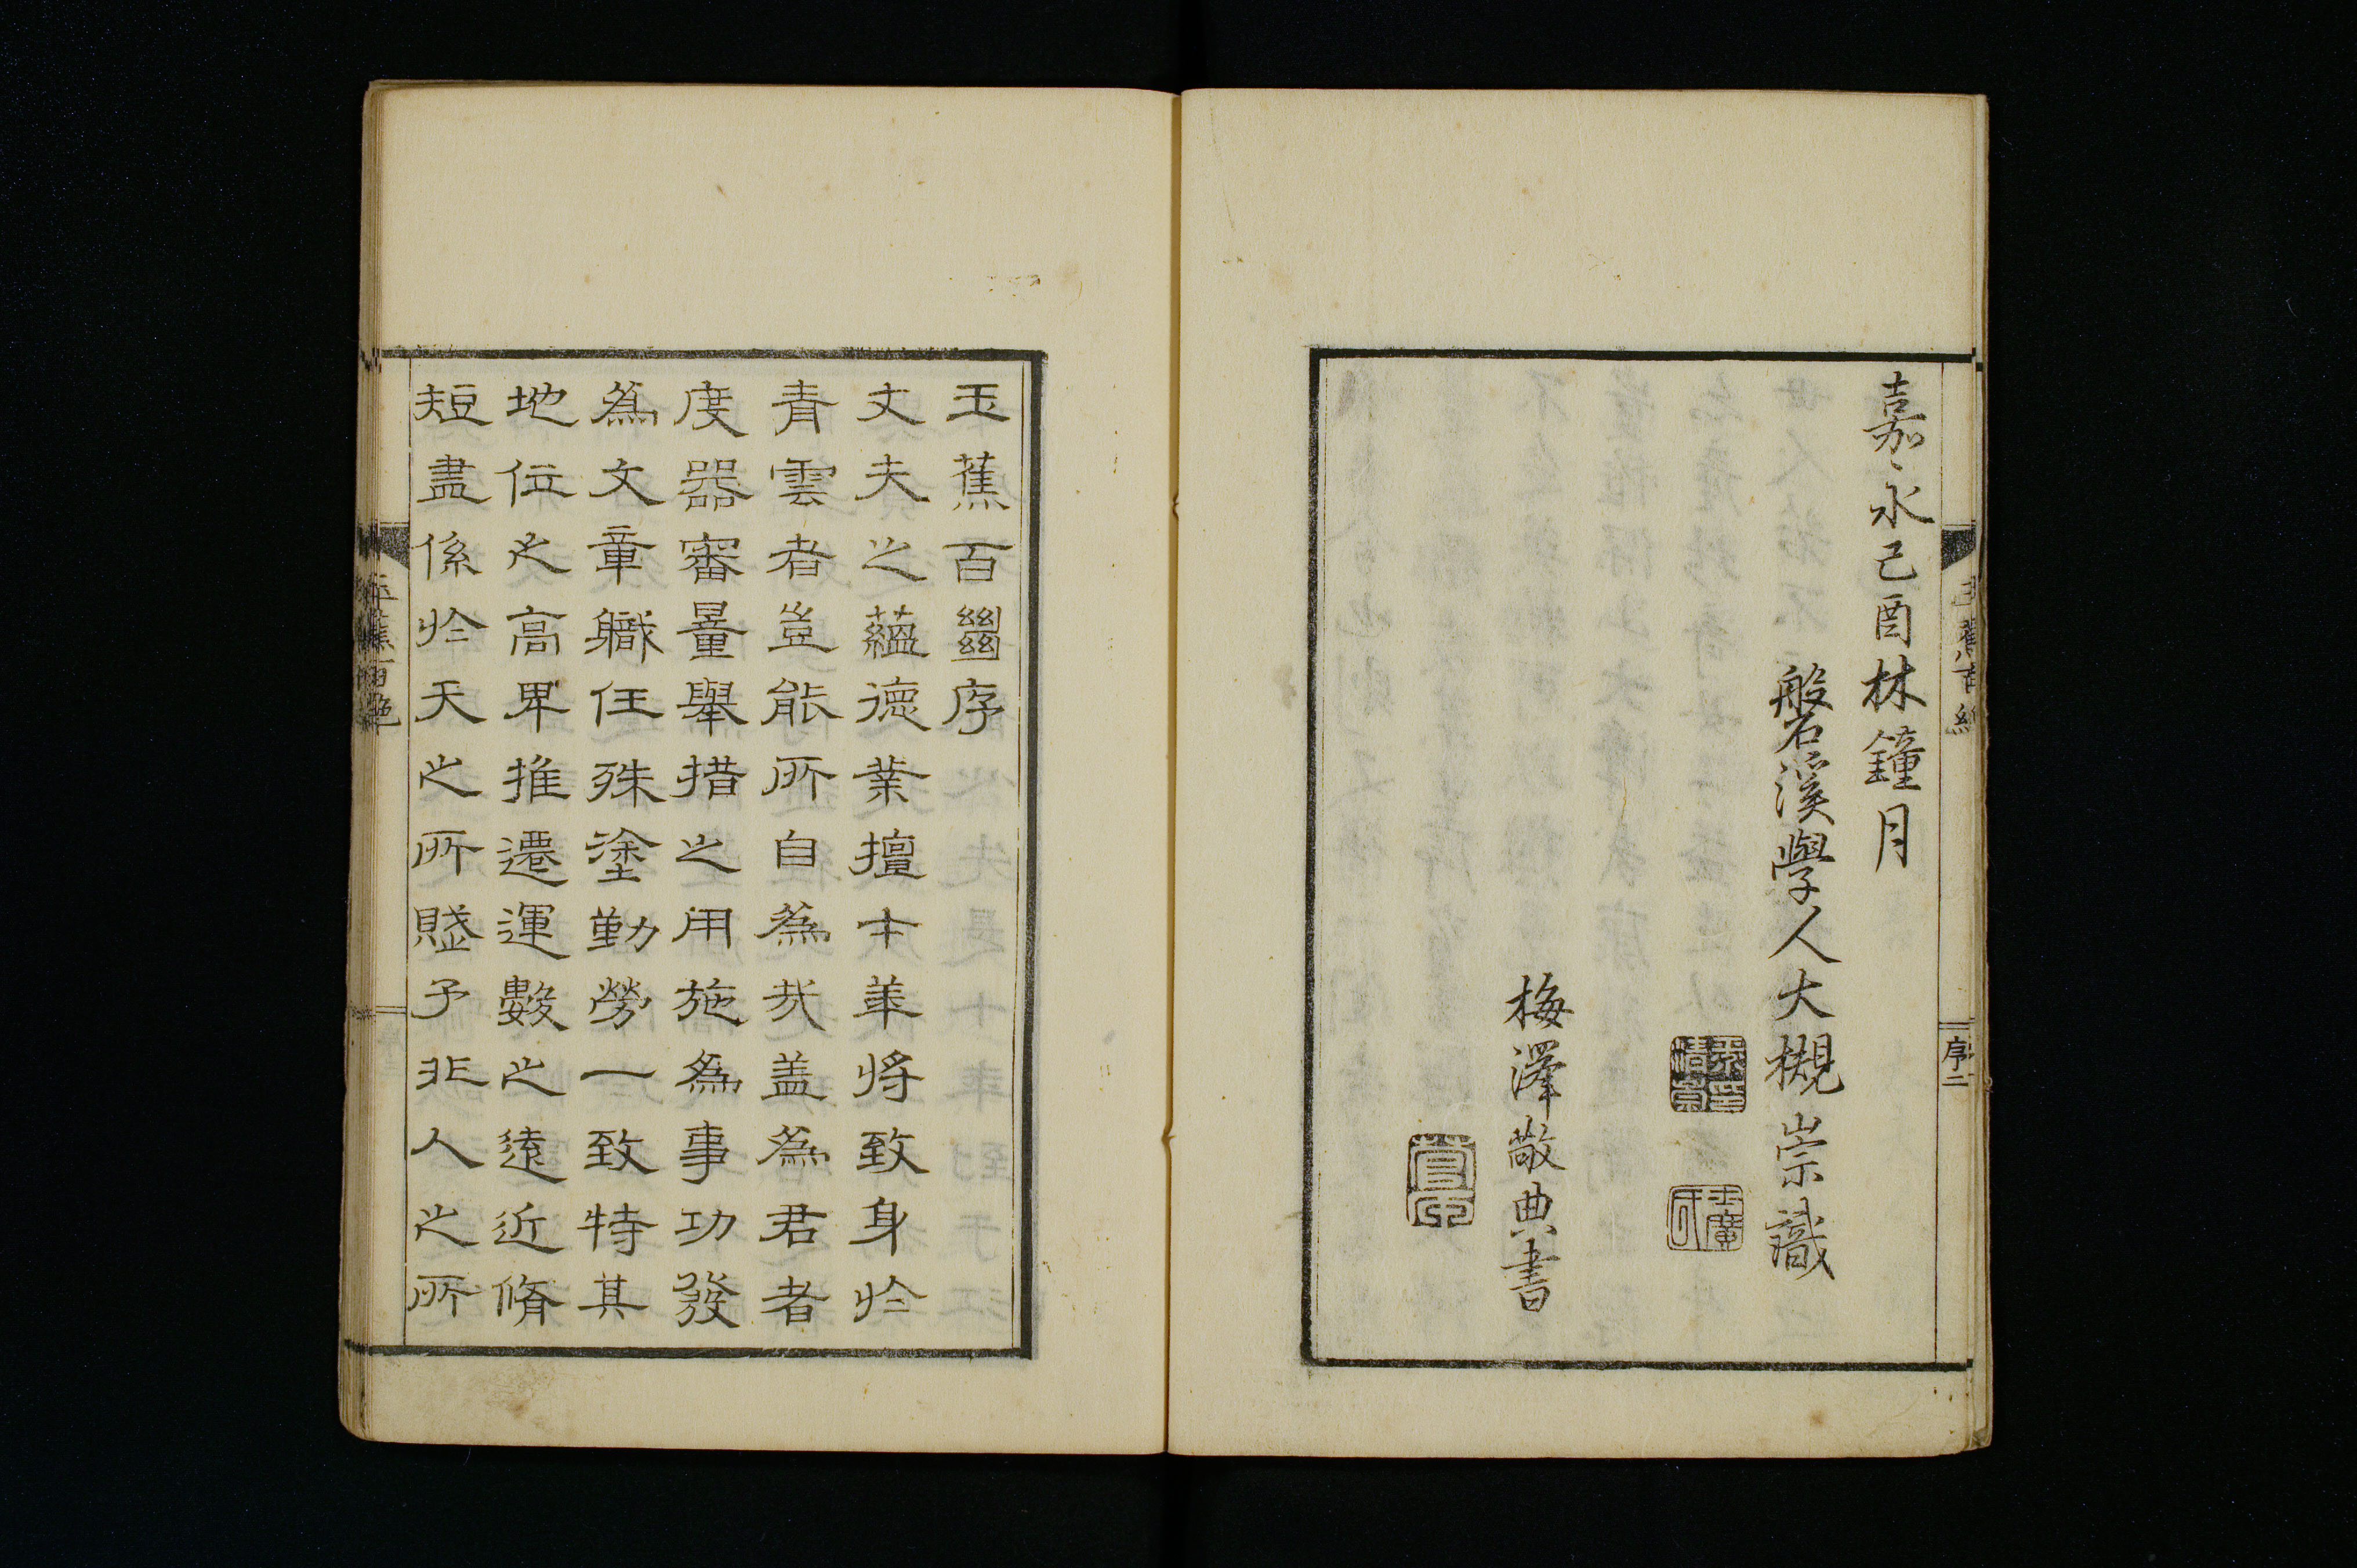 嘉永己酉林鐘月
磐溪學人大槻崇識
梅澤敬典書
序二
玉蕉百𢇍序
丈夫之蘊德業擅才華將致身於
青雲者豈能所自爲哉盖爲君者
度器審量舉措之用施爲事功發
爲文章職任殊塗勤勞一致特其
地位之高卑推遷運數之遠近脩
短盡係於天之所賦予非人之所
玉蕉百絶